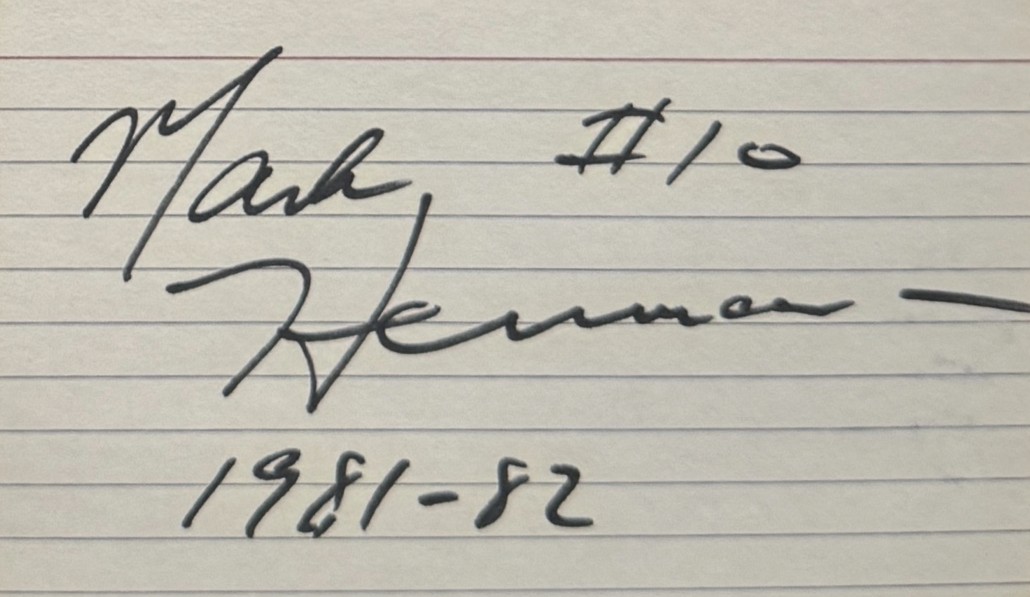 Mark #10
Herrmann
1981-82